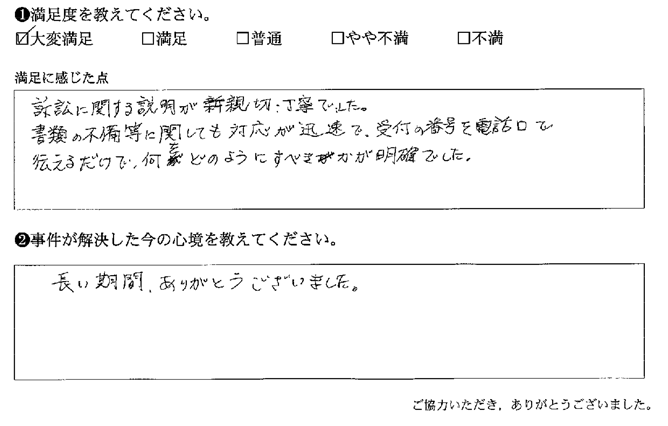 ❶満足度を教えてください。
☑大変満足 □満足 □普通 □やや不満 □不満
満足に感じた点
訴訟に関する説明が親切・丁寧でした。
書類の不備等に関しても対応が迅速で、受付の番号を電話口で
伝えるだけで、何をどのようにすべきかが明確でした。
❷事件が解決した今の心境を教えてください。
長い期間、ありがとうございました。
ご協力いただき，ありがとうございました。